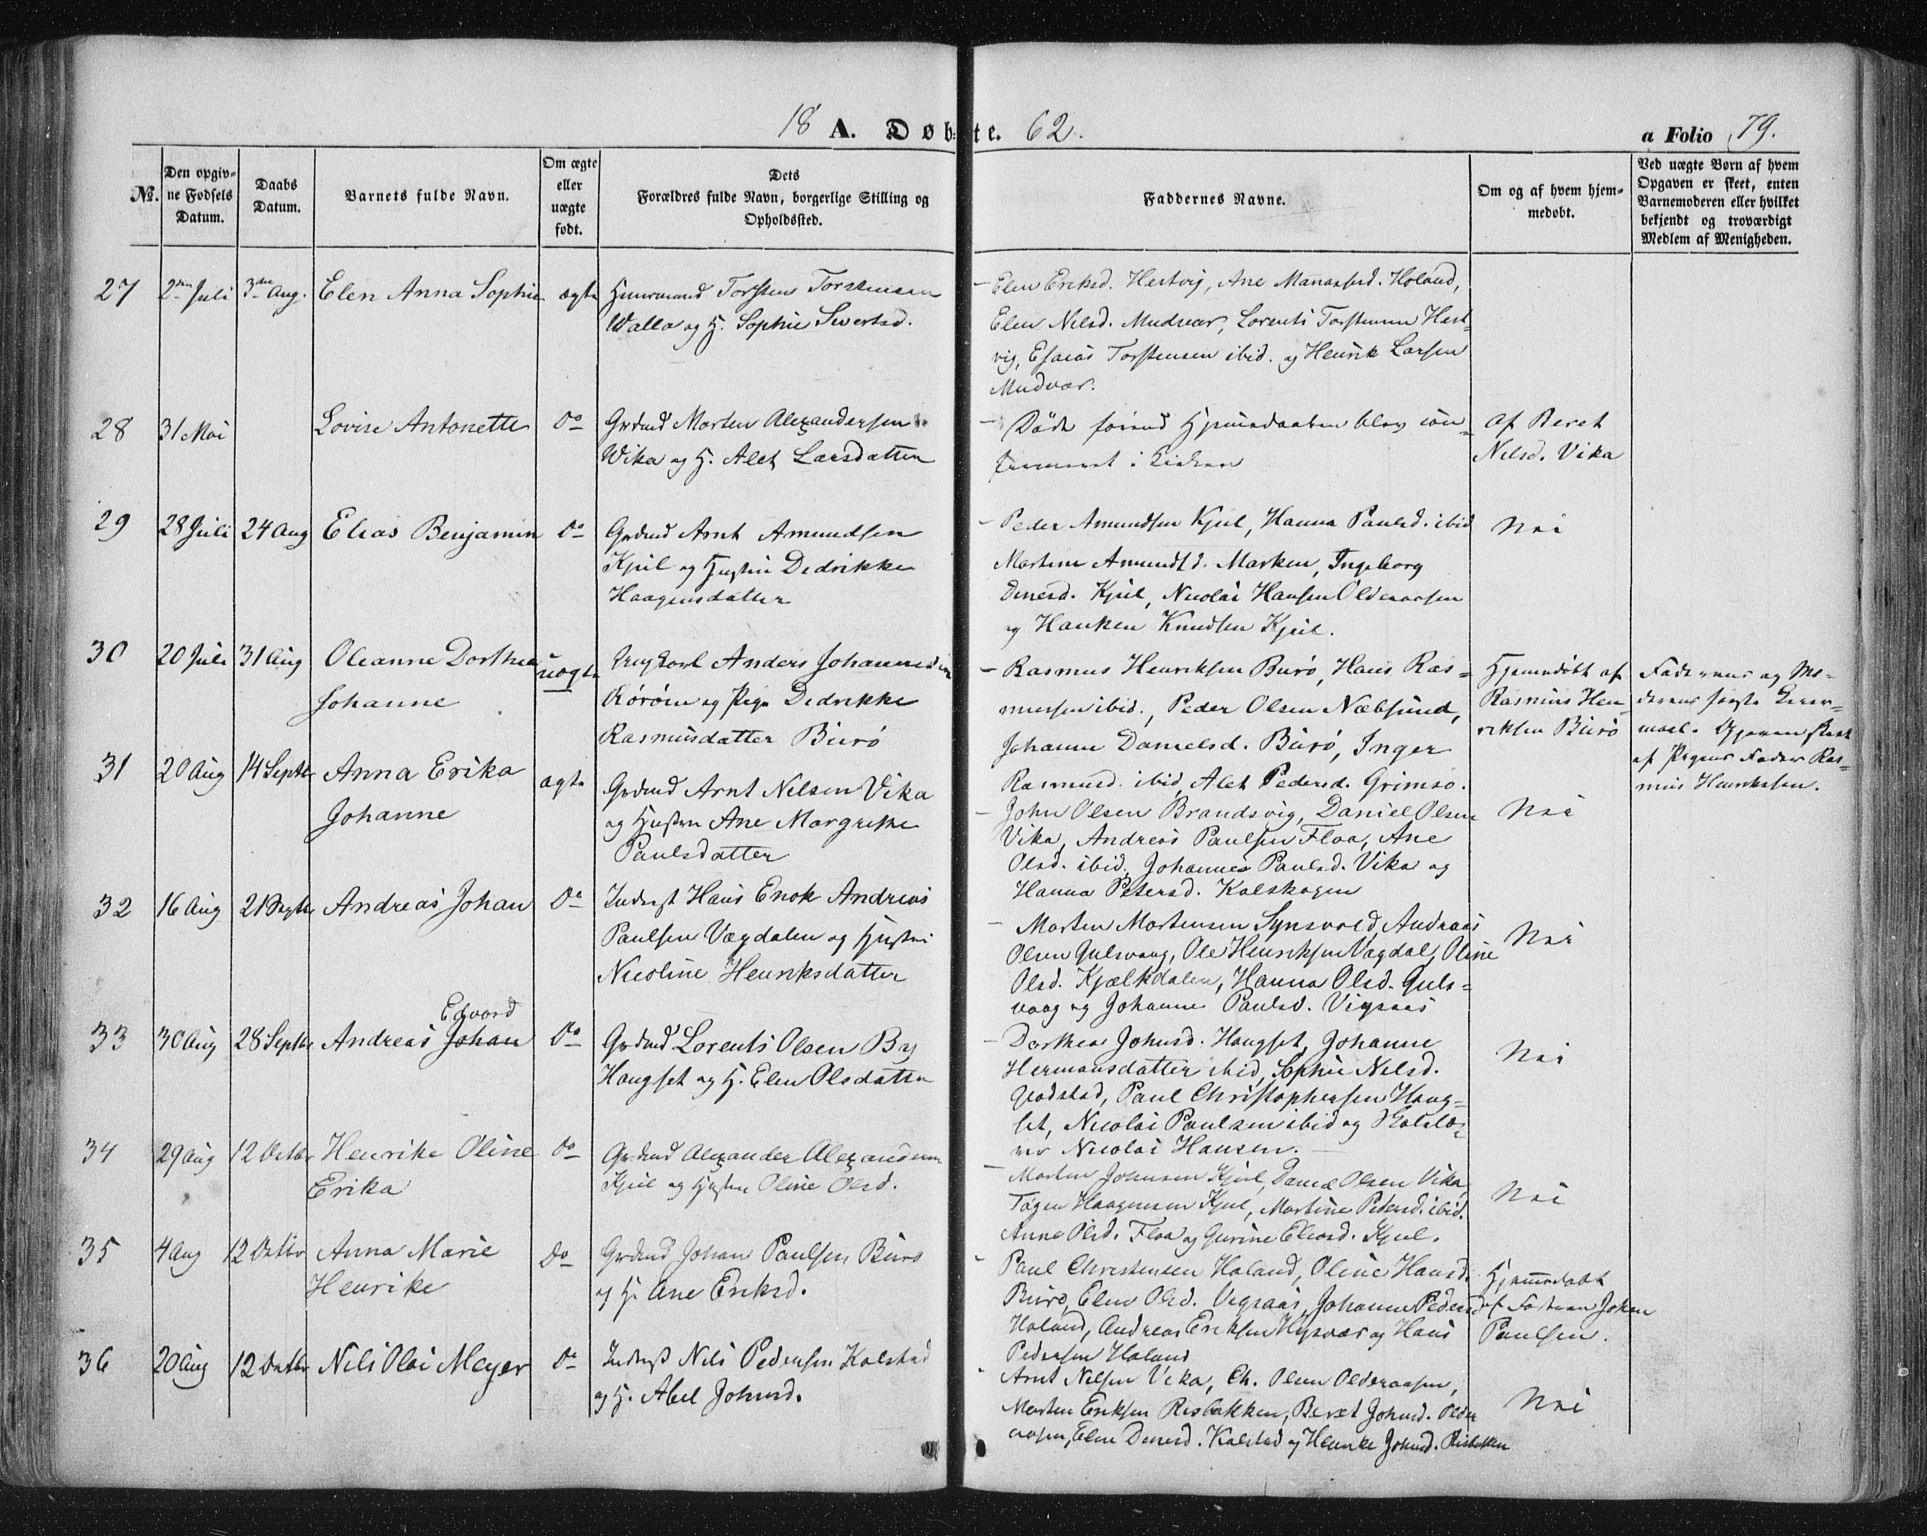 18 A. Døbte. 62.
a Folio 79.
No.
Den opgivne Fødsels Datum.
Daabs Datum.
Barnets fulde Navn.
Om ægte eller uægte født.
Dets Forældres fulde Navn, borgerlige Stilling og Opholdssted.
Faddernes Navne.
Om og af hvem hjemmedøbt.
Ved uægte Børn af hvem Opgaven er skeet, enten Barnemoderen eller hvilket bekjendt og troværdigt Medlem af Menigheden.
27 2den Juli 3die Aug. Elen Anna Sophie ægte
Torsten Torstensen
Walla og H. Sophie Sivertsd.
– Elen Eriksd. Hestvig, Ane Manassesd. Holand,
Elen Nilsd. Mudvær, Lorents Torstensen Hest-
vig, Esaias Torstensen ibid. og Henrik Larsen
Mudvær.
28 31 Mai Lovise Antonette Do
Grdmd Morten Alexandersen
Wika og H. Alet Larsdatter
– Døde førend Hjemmedaaben blev con-
firmeret i Kirken
af Beret
Nilsd. Vika
29 28 Juli 24 Aug Elias Benjamin Do
Grdmd Arnt Amundsen
Kjul og Hustru Dedrikke
Haagensdatter
– Peder Amundsen Kjul, Hanna Paulsd. ibid
Martine Amundsd. Marken, Ingeborg
Densd. Kjul, Nicolai Hansen Olderaasen
og Hanken Knudsen Kjul.
Nei
30 20 Juli 31 Aug Oleanne Dorthea
Johanne
uægte
Ungkarl Anders Johannesen
Rørøen og Pige Dedrikke
Rasmusdatter Burø
– Rasmus Henriksen Burø, Hans Ras-
mussen ibid., Peder Olsen Næbsund,
Johanne Danielsd. Burø, Inger
Rasmusd. ibid, Alet Pedersd. Grimsø.
Hjemmedøbt af
Rasmus Hen-
riksen Burø
Faderens og Mo-
derens første Leier-
maal. Opgaven skeet
af Pigens Fader Ras-
mus Henriksen.
31 20 Aug 14 Septbr Anna Erika
Johanne
ægte
Grdmd Arnt Nilsen Vika
og Hustru Ane Margrethe
Paulsdatter
– John Olsen Brandsvig, Daniel Olsen
Vika, Andreas Paulsen Floa, Ane
Olsd. ibid, Johannes Paulsd. Vika og
Hanna Petersd. Kalskagen
Nei
32 16 Aug 21 Septbr Andreas Johan Do
Inderst Hans Enok Andreas
Paulsen Vægdalen og Hustru
Nicoline Henriksdatter
– Morten Mortensen Synsvold, Andreas
Olsen Gulsvaag, Ole Henriksen Vægdal, Oline
Olsd. Kjælkdalen, Hanna Olsd. Guls-
vaag og Johanne Paulsd. Vigaas
Nei
Edvard
33 30 Aug 28 Septbr Andreas Johan Do
Grdmd Lorents Olsen By
Haugset og H. Elen Olsdatter
– Dorthea Johnsd. Haugset, Johanne
Hermansdatter ibid, Sophie Nilsd.
Gladstad, Paul Christophersen Haug-
set, Nicolai Paulsen ibid og Skolelæ-
rer Nicolai Hansen.
Nei
34 29 Aug 12 Octbr Henrike Oline
Erika
Do
Grdmd Alexander Alexandersen
Kjul og Hustru Oline Olsd.
– Morten Johnsen Kjul, Daniel Olsen Vika,
Tøger Haagensen Kjul, Martine Pedersd. ibid.
Anne Olsd. Floa og Gurine Eliasd. Kjul.
Nei
35 4 Aug 12 Octbr Anna Marie
Henrike
Do
Grdmd Johan Paulsen Burø
og H. Ane Eriksd.
Paul Christensen Holand, Oline Hansd.
Burø, Elen Olsd. Vigaas, Johanne Pedersd
Holand, Andreas Eriksen Hysvær og Hans
Pedersen Holand
Hjemmedøbt
af Faderen Johan
Paulsen.
36 20 Aug 12 Octbr Nils Olai Meyer Do
Inderst Nils Pedersen Kalstad
og H. Abel Johnsd.
– Arnt Nilsen Vika, Ch. Olsen Olderaasen,
Morten Eriksen Risbakken, Beret Johnsd. Older
aasen, Elen Densd. Kalstad og Henrike Johnsd. Risbakken
Nei